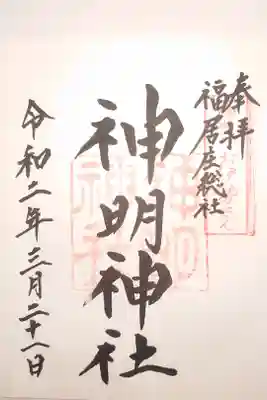 奉拝
福居庄総社
神明神社
令和二年三月二十一日